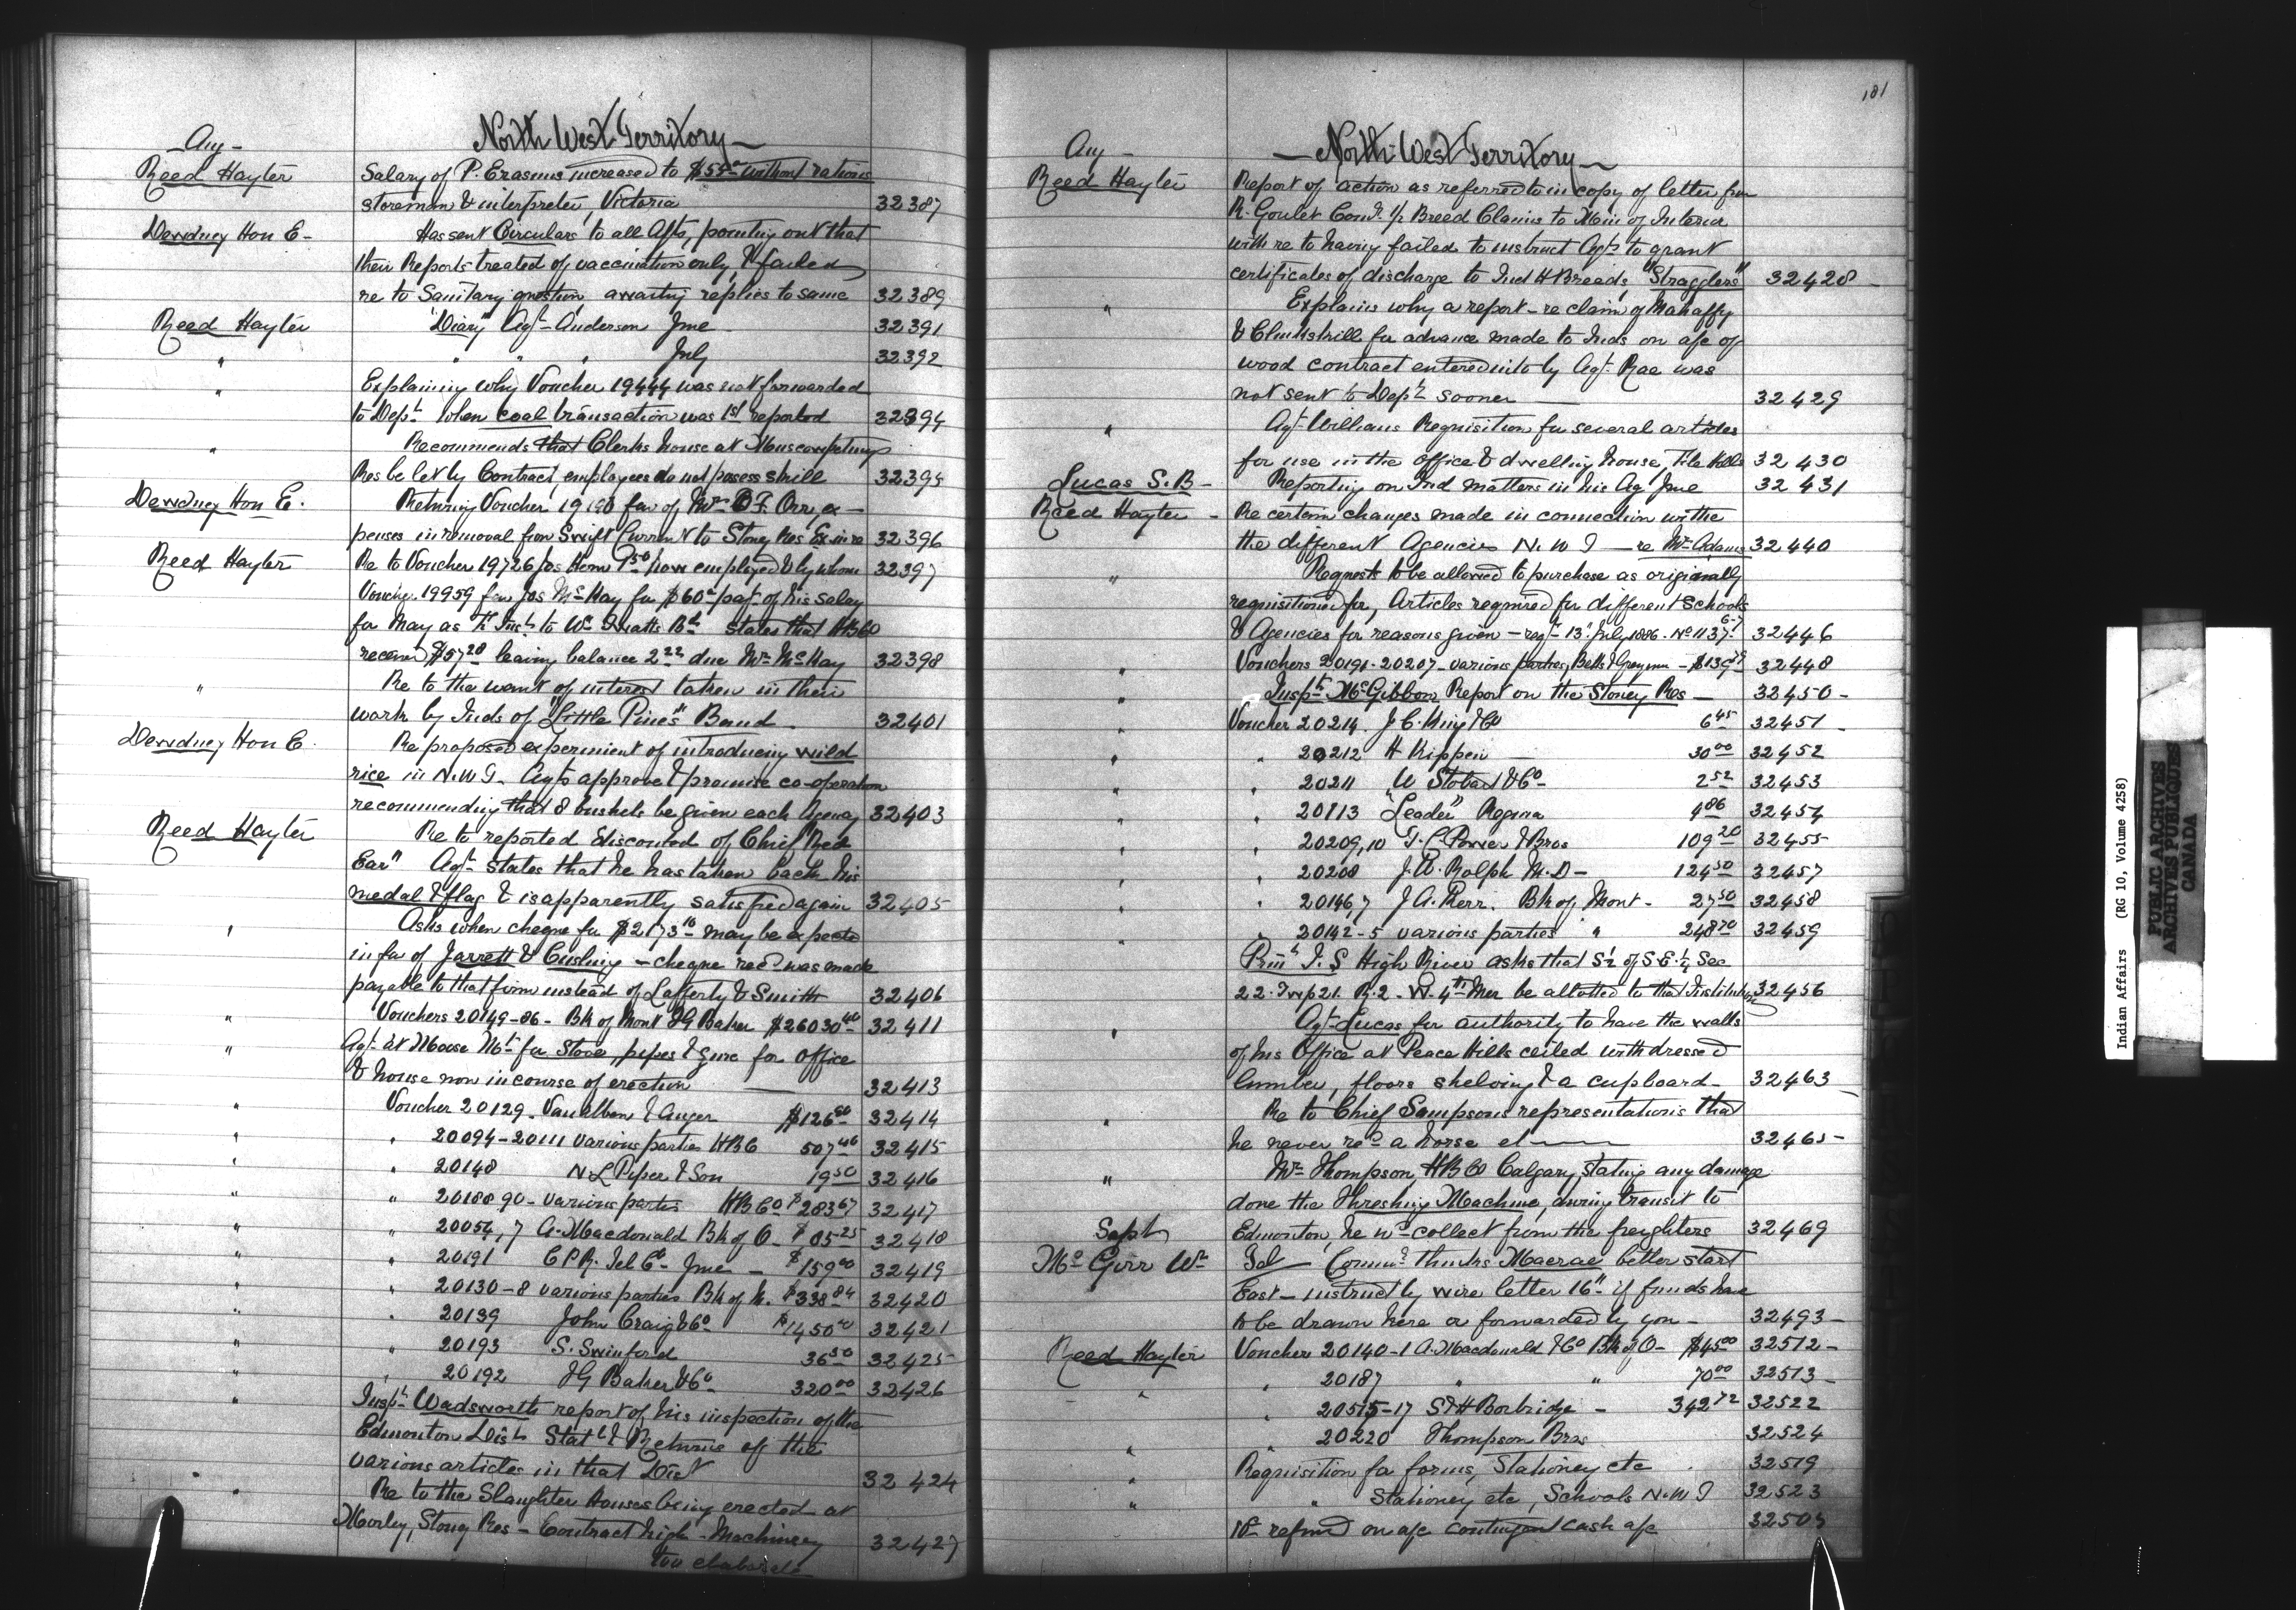 North West Territory
Aug -
Reed Hayter Salary of P. Erasmus increased to $55 00 without rations
storeman & interpreter, Victoria 32387
Dewdney Hon E- Has sent Circulars to all Agts, pointing out that
their Reports treated of vaccination only, & failed
re to Sanitary question, awaiting replies to same 32389
Reed Hayter "Diary" Agt- Anderson June 32391
" " " " July 32392
" Explaining why Voucher 19444 was not forwarded
to Dept when coal transaction was 1st reported 32394
" Recommends that Clerks house at Muscowpetungs
Res be let by Contract, employees do not posess skill 32395
Dewdney Hon E. Returning Voucher 19190 fav of Mr O F. Orr, ex-
penses in removal from Swift Current to Stoney Res 32396
Reed Hayter Re to Voucher 19726 Jas Horn 7 50 how employed & by whom 32397
Voucher 19959 fav Jas McKay for $60 - pat of his salary
for May as to Wm States that HBCo
received $57 28 leaving balance 2 22 due Mr McKay 32398
" Re to the want of interest taken in their
work by Inds of "Little Pines" Band 32401
Dewdney Hon E. Re proposed experiment of introducing wild
rice in N.W.T- Agts approve & promise co-operation
recommending that 8 bushels be given each Agency 32403
Reed Hayter Re to reported discontent of Chief "Red
Ear" Agt- States that he has taken back his
medal & flag & is apparently satisfied again 32405
" Asks when cheque for $2173 10 may be expected
in fav of Jarrett & Cushing - cheque recd was made
payable to that firm instead of Lafferty & Smith 32406
" Vouchers 20149-86- Bk of Mont I G Baker $26030 40 32411
" Agt- at Moose Mt- for Stove, pipes & zinc for Office
& house now in course of erection 32413
" Voucher 20129. Vanalben & Auger $126 50 32414
" " 20094-20111 various parties HBC 507 46 32415
" " 20148 N L Piper & Son 19 50 32416
" " 20188.90- various parties HBCo $283 67 32417
" " 20054,7 A. Macdonald Bk of O- $85 25 32418
" " 20191 C P R. Tel Co- June - $159 00 32419
" " 20130-8 various parties Bk of M. $338 84 32420
" " 20139 John Craig & Co- $1450 00 32421
" " 20193 S. Swinford 36 50 32425
" " 20192 I G Baker & Co- 320 00 32426
" Inspr Wadsworth report of his inspection of the
Edmonton Dist Statt & Returns of the
various articles in that Dist 32424
" Re to the Slaughter Houses being erected at
Morley, Stony Res - Contract high - Machinery 32427
too elaborate
181
Aug - - North-West Territory -
Reed Hayter Report of action as referred to in copy of letter from
R. Goulet Comr. 1/2 Breed Claims to Min of Interior
with re to having failed to instruct Agts to grant
certificates of discharge to Ind H Breeds, "Stragglers" 32428 -
" Explains why a report - re claim of Mahaffy
& Clinkskill for advance made to Inds on a/c of
wood contract entered into by Agt- Rae was
not sent to Dept sooner 32429
" Agt- Williams Requisition for several articles
for use in the office & dwelling house, File Hills 32430
Lucas S. B- Reporting on Ind matters in his Ag June 32431
Reed Hayter - Re certain changes made in connection withe
the different Agencies N.W T - re Mr Adams 32440
" Requests to be allowed to purchase as originally
requisitioned for, Articles required for different Schools
& Agencies for reasons given - reqt- 13" July 1886. No 1137. 6-7 32446
" Vouchers 20191-20207 various parties, Bells & Grayman - $139 79 32448
" Inspr McGibbon Report on the Stoney Res - 32450 -
" Voucher 20214. J. C. King & Co 6 45 32451 -
" " 20212 H Kippen 30 00 32452
" " 20211 W Stobart & Co- 2 52 32453
" " 20113 "Leader" Regina 4 86 32454
" " 20209,10 T. C Power & Bros 109 20 32455
" " 20208 J. W. Rolph M.D - 124 50 32457
" " 20146,7 J A. Kerr. Bk of Mont- 27 50 32458
" " 20142-5 various parties " 248 70 32459
Prinl I. S High River asks that S 1/2 of S.E. 1/4 Sec
22. Twp 21. R. 2 - W. 4th Mer be allotted to that Institution 32456
" Agt- Lucas for authority to have the walls
of his Office at Peace Hills ceiled with dressed
lumber, floors shelving & a cupboard- 32463 -
" Re to Chief Sampsons representations that
he never recd a horse et 32465 -
" Mr Thompson, HB Co Calgary, stating any damage
done the Threshing Machine, during transit to
Sept Edmonton, he wd collect from the freighters 32469
McGirr Wm Tel - Commr thinks Macrae better start
East - instruct by wire letter 16" if funds have
to be drawn here or forwarded by you - 32493 -
Reed Hayter Voucher 20140-1 A. Macdonald & Co Bk of O- $45 00 32512 -
" " 20187 " " 70 00 32513 -
" 20515-17 S & H Borbridge - 342 72 32522
" " 20220 Thompson Bros 32524
" Requisition for forms, Stationey etc 32519
" " Stationey etc, Schools N.W T 32523
refund on a/c contingent cash a/c 32505
Indian Affairs (RG 10, Volume 4258)
PUBLIC ARCHIVES
ARCHIVES PUBLIQUES
CANADA